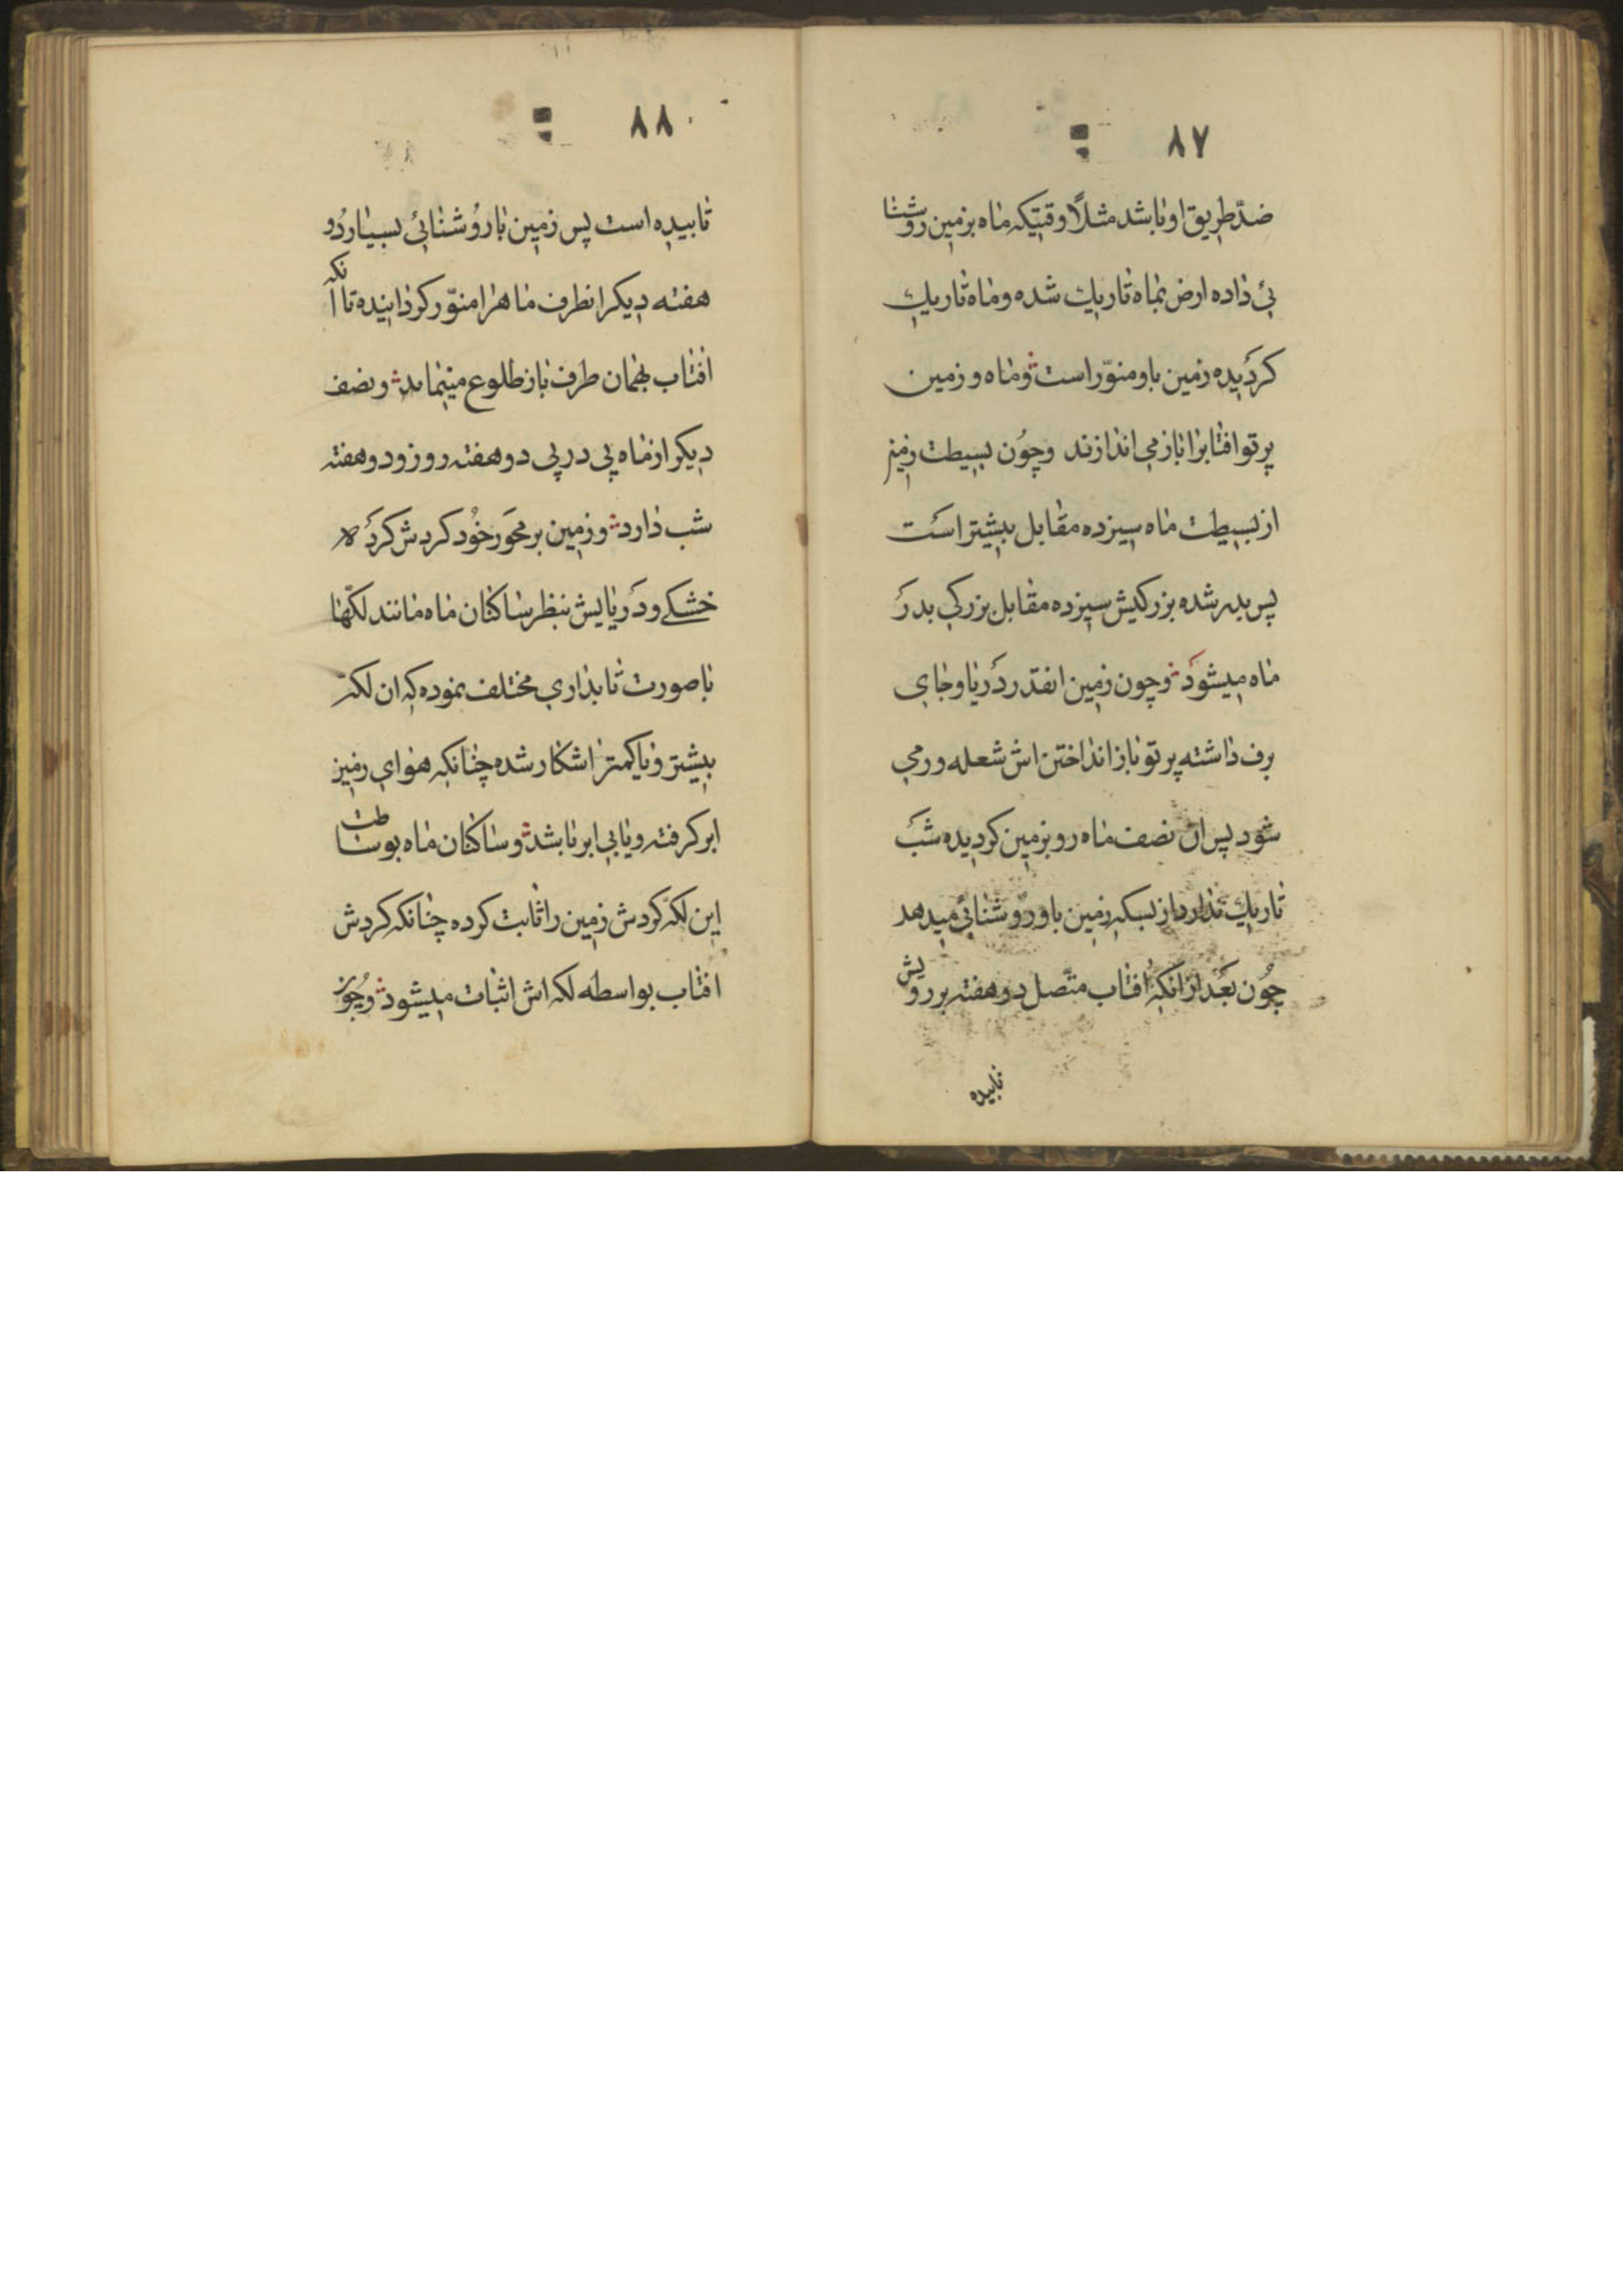 ۸۷
ضدّ طریق او باشد مثلاً وقتیکه ماه بزمین روشنا
ئی داده ارض بماه تاریك شده و ماه تاریك
کردیده زمین باو منوّر است و ماه و زمین
پرتو افتابرا باز می اندازند وچون بسیطت زمین
از بسیطت ماه سیزده مقابل بیشتر است
پس بدر شده بزرکیش سیزده مقابل بزرکی بدر
ماه میشود و چون زمین انقدر دریا و جای
برف داشته پرتو باز انداختن اش شعله ور می
شود پس ان نصف ماه رو بزمین کردیده شب
تاریك ندارد از بسکه زمین باو روشنائی میدهد
چون بعد از انکه افتاب متّصل دو هفته بر رویش
تابیده
۸۸
تابیده است پس زمین با روشنائی بسیار دو
هفته دیکر انطرف ماهرا منوّر کردانیده تا انکه
افتاب بهمان طرف باز طلوع مینماید و نصف
دیکر از ماه پی در پی دو هفته روز و دو هفته
شب دارد و زمین بر محور خود کردش کرده
خشکی و دریایش بنظر ساکنان ماه مانند لکّها
با صورت تابداری مختلف نموده که ان لکه
بیشتر و یا کمتر اشکار شده چنانکه هوای زمین
ابر کرفته و یا بی ابر باشد و ساکنان ماه بوساطت
این لکه کردش زمین را ثابت کرده چنانکه کردش
افتاب بواسطه لکه اش اثبات میشود و چون